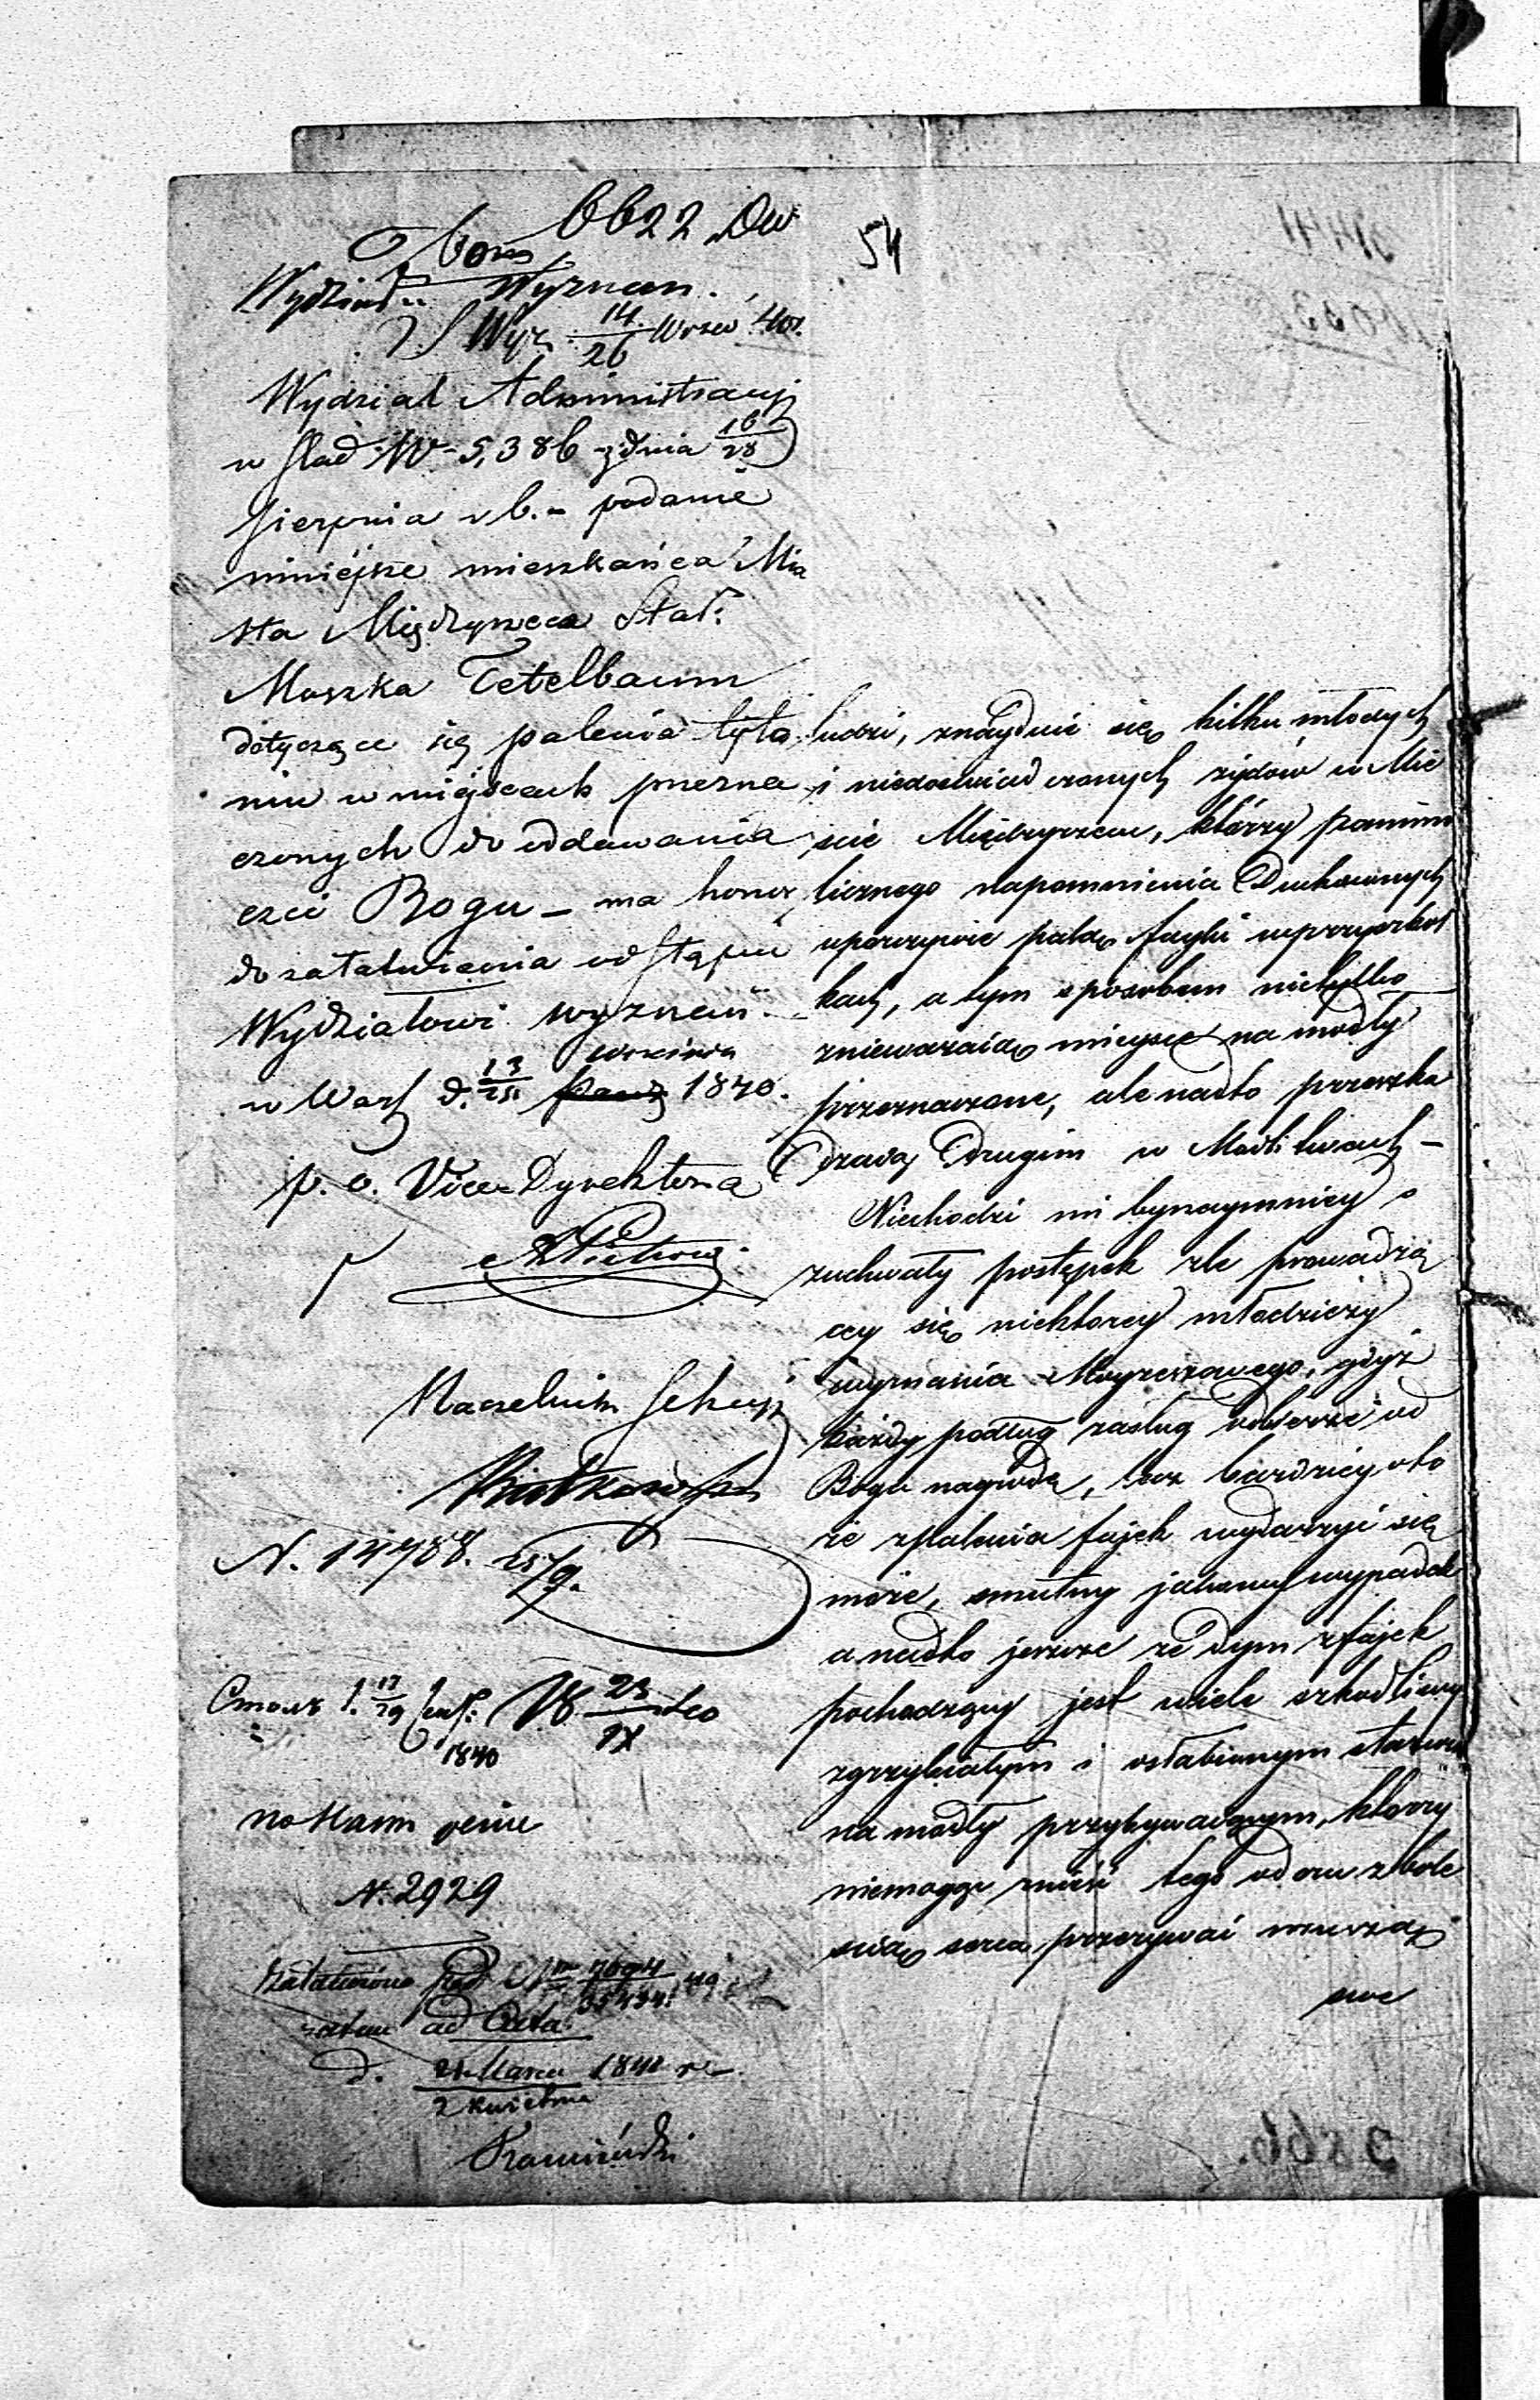 6622 Dw
54
Wydział Wyznan.
Wyz. 14/26 Wrześ 40 r.
Wydział Administracyj
w ślad N 5,386 z dnia 16/28
Sierpnia r b. - podanie
niniejsze mieszkańca Mia
sta Międzyrzeca Star:
Moszka Tetelbaum
dotyczące się palenia tyto
niu w miejscach przezna
czonych do oddawania
czci Bogu - ma honor
do załatwienia odstąpić
Wydziałowi wyznań.
Września
w Warsz d. 13/25 1840.
p. o. Vice-Dyrektora
Naczelnik Sekcyi
N. 14788. 25/9.
17/29 1840
23/IX
N. 2929
Załatwiono pod N 7094/35434
zatem ad Acta
d. 21 Marca 1841 r
2 Kwietnia
Kamiński
ludzi, znayduie się kilku młodych
i niedoświadczonych żydów w Mie
scie Międzyrzecu, którzy pomimo
licznego napomnienia Duchownych
uporczywie palą fayki w przyszkół
kach, a tym sposobem nietylko
znieważaią mieysce na modły
przeznaczone, ale nadto przeszka
dzaią drugim w Modlitwach -
Niechodzi mi bynaymniey o
zuchwały postępek zle prowadzą
cey się niektorey młodzieży
wyznania Moyżeszowego, gdyż
każdy podług zasług odbierze od
Boga nagrodę, lecz bardziey oto
że z palenia fajek wydarzyć się
może, smutny jakowy wypadek
a nadto jeszcze że dym z fajek
pochodzący jest wiele szkodliwy
zgrzybiałym i osłabionym starcom
na modły przybywaiącym, którzy
niemogąc znieść tego odoru z bole
scią serca przerywać muszą
swe